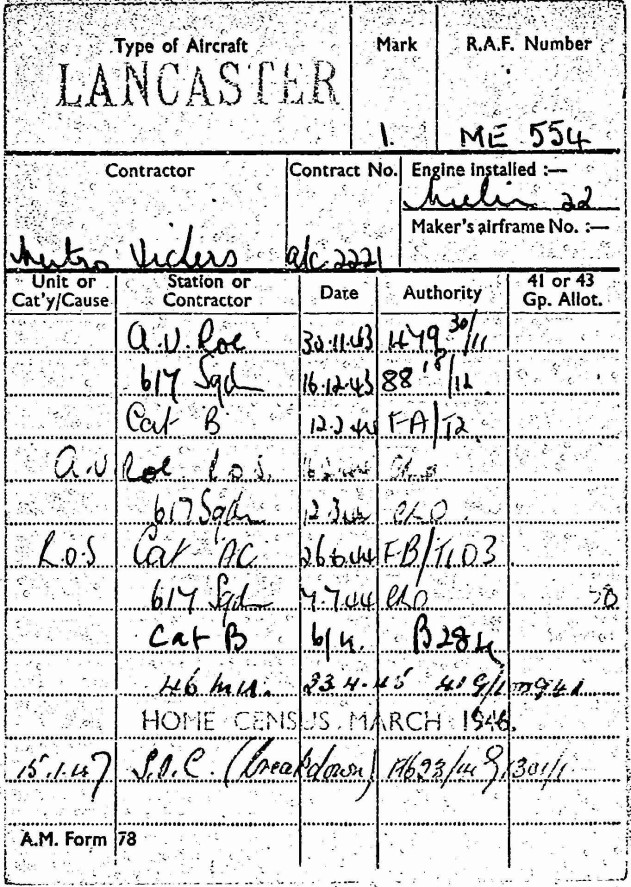 Type of Aircraft Mark R.A.F. Number
LANCASTER 1. ME 554
Contractor Contract No. Engine installed :—
Merlin 22
Maker's airframe No. :—
Metro Vickers a/c 2221
Unit or Cat'y/Cause Station or Contractor Date Authority 41 or 43 Gp. Allot.
A.V. Roe 30.11.43 479 30/11
617 Sqdn 16.12.43 88 18/12
Cat B 12.2.44 FA/T2.
A.V Roe R.O.S.
617 Sqdn 12.3.44
R.O.S Cat AC 26.6.44 FB/T1.03
617 Sqdn 7.7.44
Cat B 6/4. B284
46 mu. 23.4.45 41G/1
HOME CENSUS MARCH 1946.
15.1.47 S.O.C. (breakdown)
A.M. Form 78